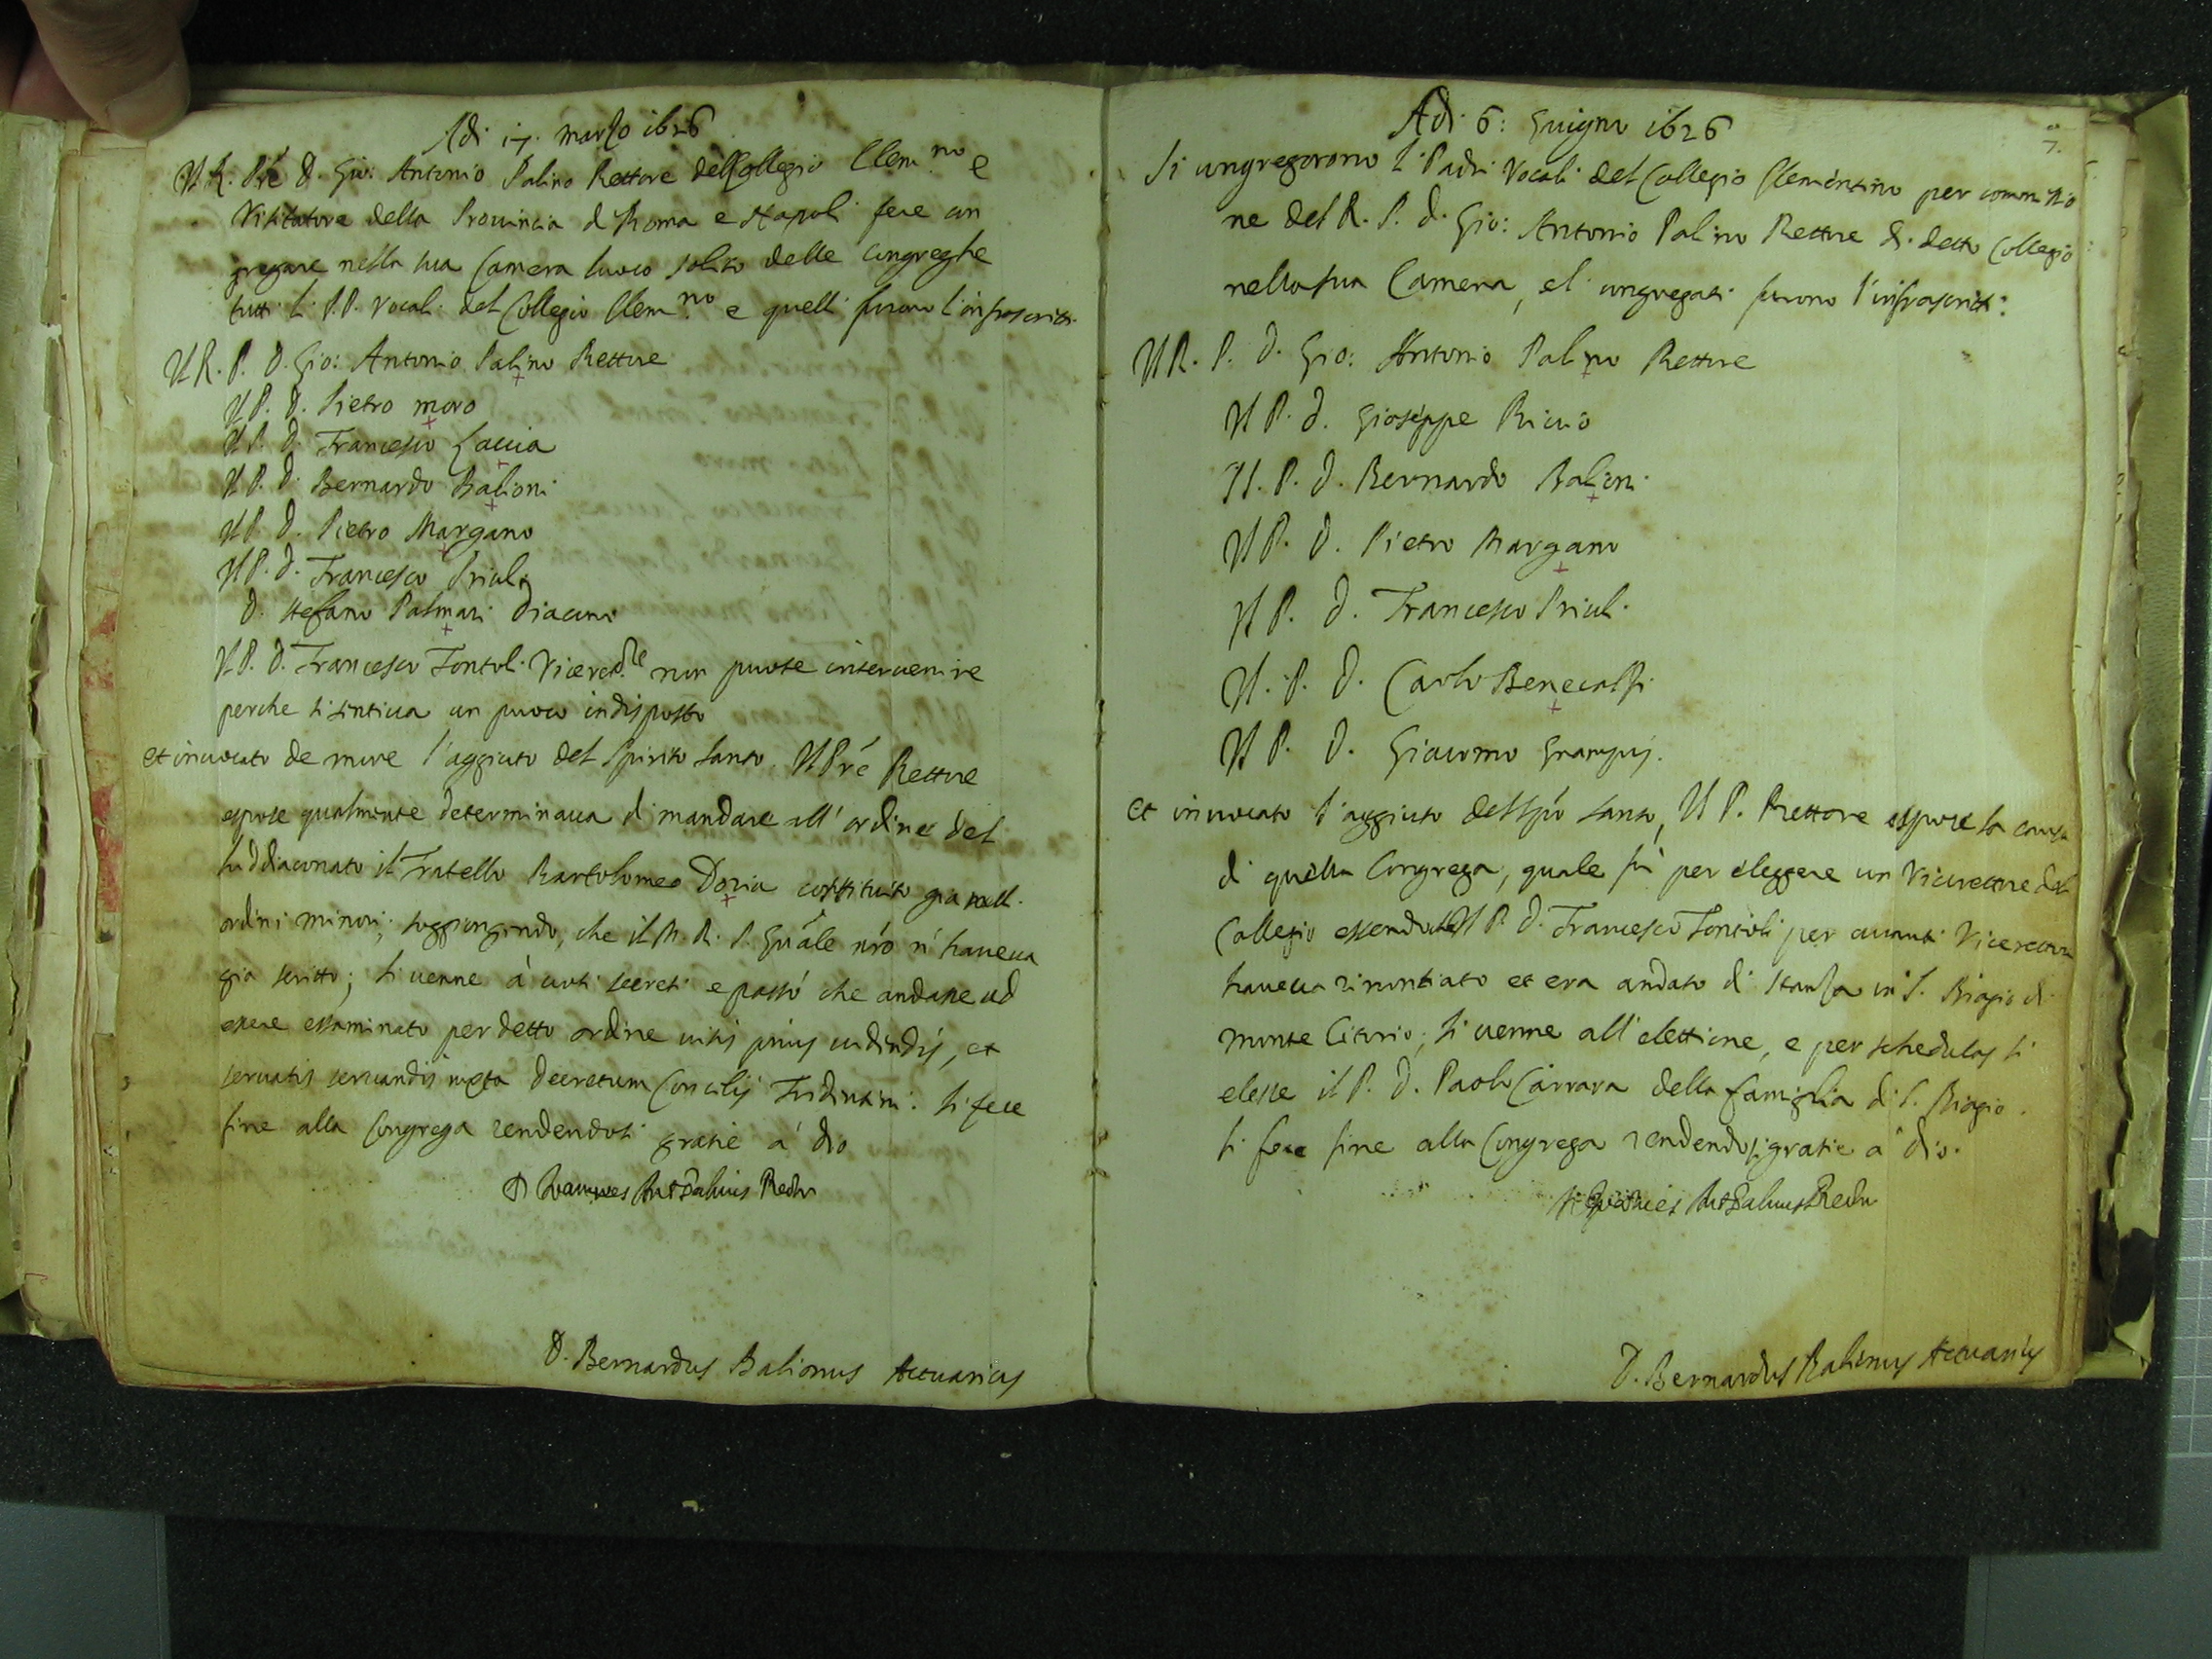 Adi 17. marzo 1626
Il R. Pre D. Gio: Antonio Palino Rettore del Collegio Clem.no e
Visitatore della Provincia di Roma e Napoli fece con
gregare nella sua Camera luoco solito delle Congreghe
tutti li P.P. Vocali del Collegio Clem.no e quelli furono l'infrascritti.
Il R. P. D. Gio: Antonio Palino Rettore
Il P. D. Pietro moro
Il P. D. Francesco
Il P. D. Bernardo Balioni
Il P. D. Pietro Margano
Il P. D. Francesco Priuli
D. Stefano Palmari Diacono
Il P. D. Francesco Tontoli Vicerett.re non puote intervenire
perche si sentiva un puoco indisposto
et invocato de more l'aggiuto del Spirito Santo. Il Pre Rettore
espose qualmente determinava di mandare all'ordine del
suddiaconato il Fratello Bartolomeo Doria costituito gia nell.
ordini minori; soggiongendo, che il M. R. P. Gnãle nr̃o n'haveva
gia scritto; si venne à voti secreti e passò che andasse ad
essere essaminato per detto ordine visis prius videndis, et
servatis servandis iuxta Decretum Concilij Tridintini. si fece
fine alla Congrega rendendosi gratie a' dio
D Ioannes Ant Palinus Rector
D. Bernardus Balionus Actuarius
7.
Adi 6: Guigno 1626
Si congregorono li Padri Vocali del Collegio Clementino per commissio
ne del R. P. D. Gio: Antonio Palino Rettore di detto Collegio
nella sua Camera, e li congregati furono l'infrascritti:
Il R. P. D. Gio: Antonio Palino Rettore
Il P. D. Gioseppe
Il. P. D. Bernardo Balioni
Il P. D. Pietro Margano
Il P. D. Francesco Priuli.
Il. P. D. Carlo Benecalsi
Il P. D. Giacomo
et invocato l'aggiuto del Spo santo, Il P. Rettore espose la causa
di quella Congrega, quale fù per eleggere un Vicerettore del
Collegio essendo che Il P. D. Francesco Tontoli per avanti Vicerettore
haveva rinontiato et era andato di stanza in S. Biagio di
Monte Citorio; si venne all'elettione, e per schedulas si
elesse il P. D. Paolo Carrara della famiglia di S. Biagio.
si fece fine alla Congrega rendendosi gratie a' dio.
Ioannes Ant Palinus Rector
D. Bernardus Balionus Actuarius